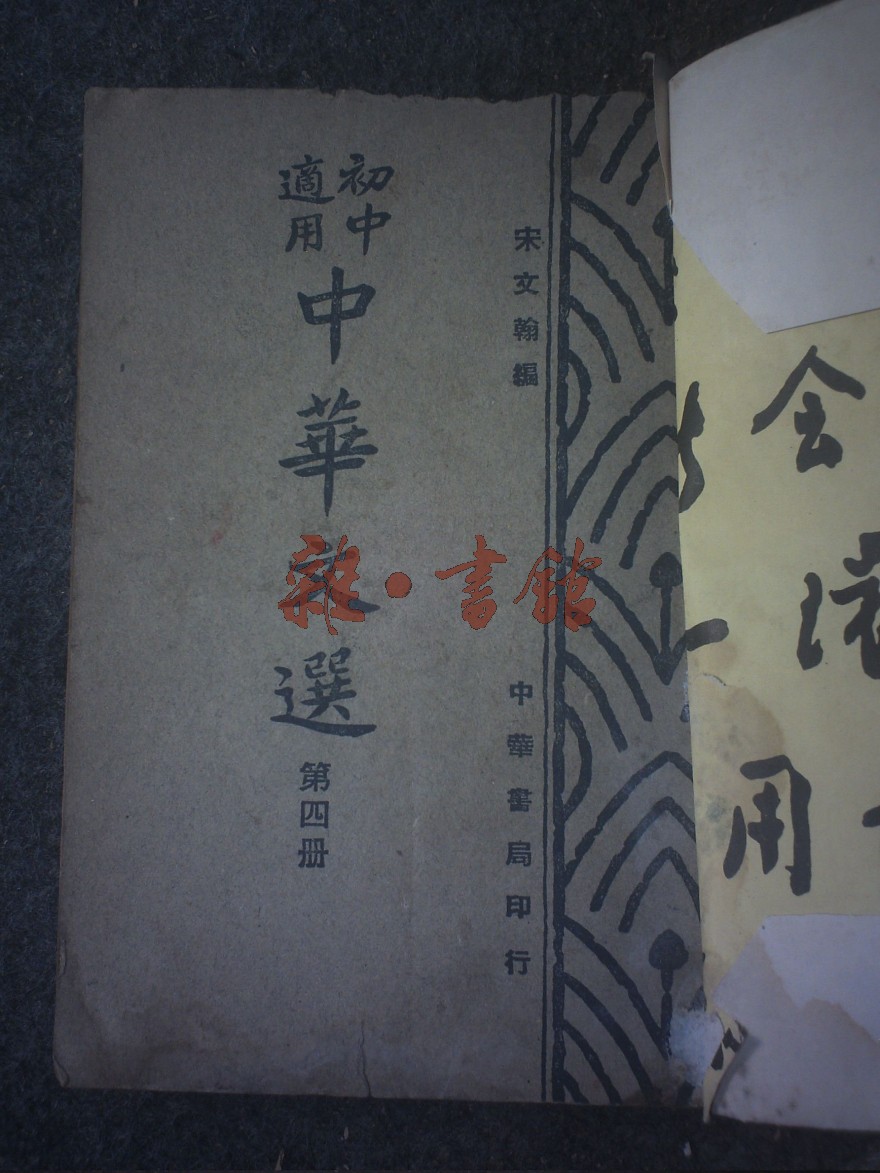 初中
適用
中華文選
第四册
宋文翰編
中華書局印行
雜·書館
用